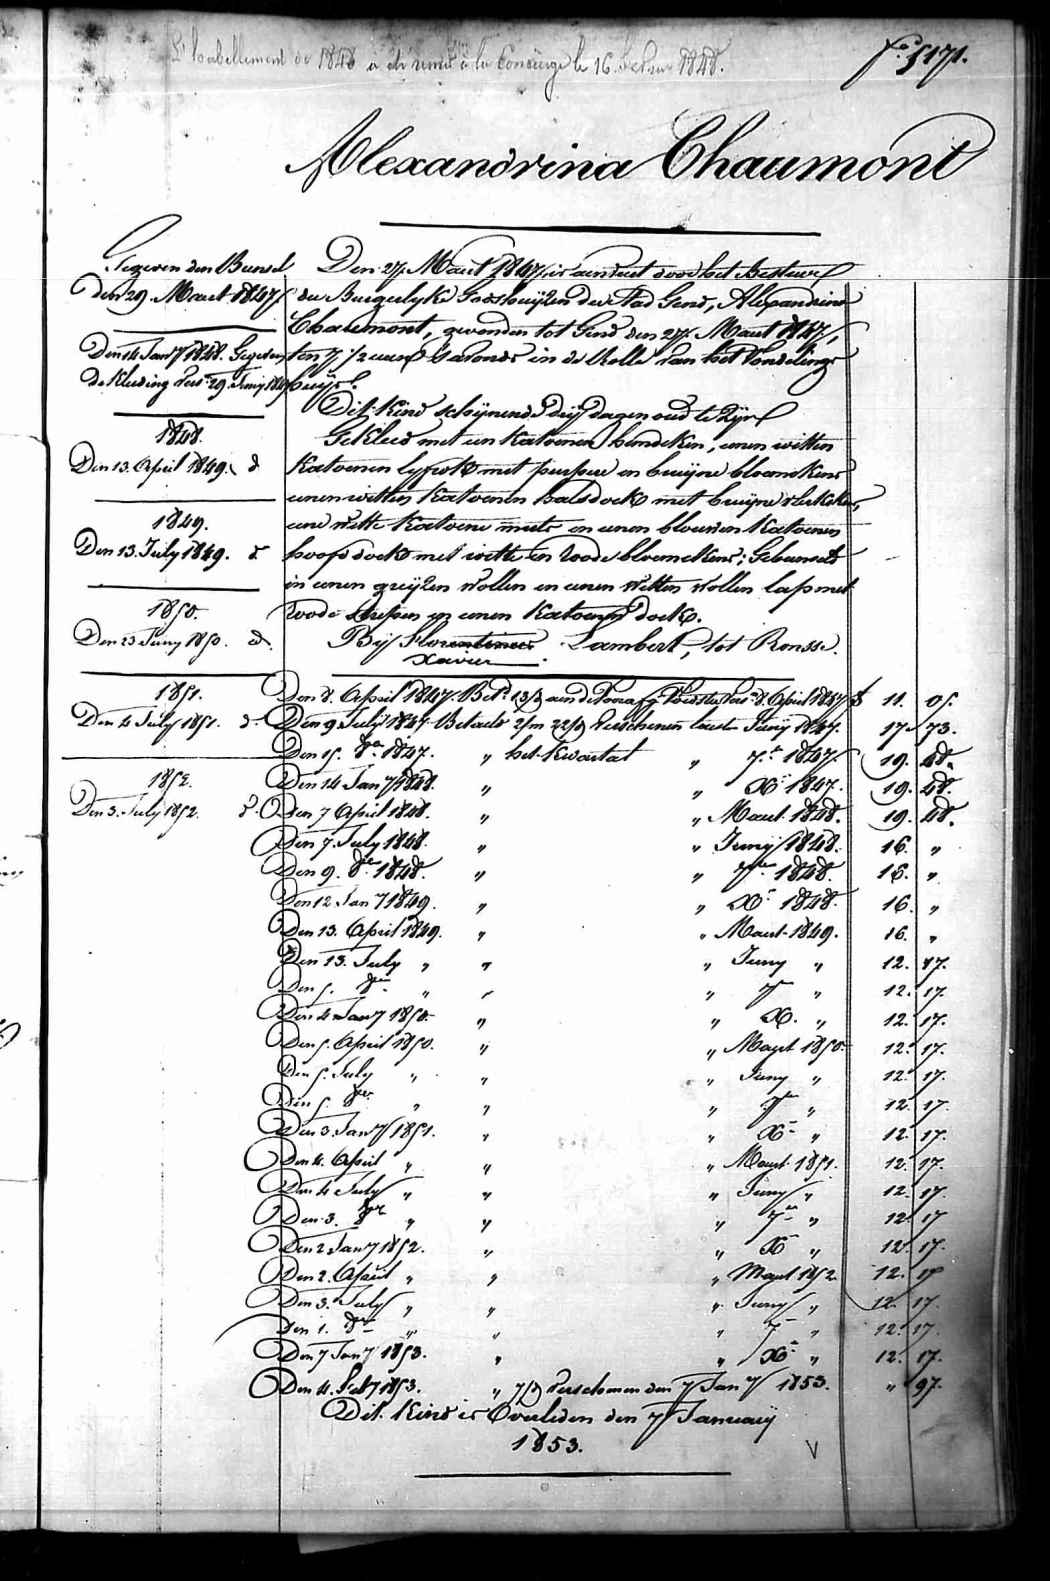 L'habillement de 1848 a été remis à la Concierge le 16 1848.
f° 5171.
Alexandrina Chaumont
Gegeven den Bunsel
den 29. Maart 1847
Den 14 Jany 1848. Gegeven
de Kleeding Vers. 29 Juny 1849
1848.
Den 13. April 1849. d°
1849.
Den 13. July 1849. d°
1850.
Den 23 Juny 1850. d°.
1851.
Den 4 July 1851. d°
1852.
Den 3. July 1852. d°
Den 27. Maart 1847 is aenveert door het Bestuer
der Burgerlyke Godshuyzen der Stad Gend, Alexandrina
Chaumont, gevonden tot Gend den 27. Maart 1847,
ten 7 1/2 uren s'avonds in de Rolle van het Vondelinge
huys.
Dit Kind schynende dry dagen oud te zyn
Gekleed met een Katoenen hemdeken, eenen witten
Katoenen lyfrok met purpere en bruyne bloemekens
eenen witten Katoenen halsdoek met bruyne vlekskens,
eene witte Katoene muts en eenen blouwen Katoenen
hoofddoek met witte en roode bloemekens; Gebunseld
in eenen gryzen wollen en eenen witten wollen lap met
roode streepen en eenen Katoenen doek.
By Florentinus Lambert, tot Ronsse.
Xavier
Den 8. April 1847. Bet. 13/ aen de Voorafg. Voedster Vers. 8. April 1847 f 11. 05.
Den 9 July 1847 Betaelt 2/m 22/d Verschenen laeste Juny 1847. 17 73.
Den 15. 8er 1847. " het Kwartael " 7er 1847. 19. 48.
Den 14 Jany 1848. " " Xr 1847. 19. 48.
Den 7 April 1848. " " Maart 1848. 19. 48.
Den 7. July 1848. " " Juny 1848. 16. "
Den 9. 8er 1848. " " 7er 1848. 16. "
Den 12 Jany 1849. " " Xr 1848. 16. "
Den 13. April 1849. " " Maart 1849. 16. "
Den 13. July " " " Juny " 12. 17.
Den 5. 8er " " " 7er " 12. 17.
Den 4 Jany 1850. " " X. " 12. 17.
Den 5. April 1850. " " Maart 1850. 12. 17.
Den 5. July " " " Juny " 12. 17.
Den 5. 8er " " " 7er " 12. 17.
Den 3. Jany 1851. " " Xr " 12. 17.
Den 4. April " " " Maart 1851. 12. 17.
Den 4 July " " " Juny " 12. 17.
Den 3. 8er " " " 7er " 12. 17
Den 2 Jany 1852. " " X " 12. 17.
Den 2. April " " " Maart 1852. 12. 17
Den 3. July " " " Juny " 12. 17.
Den 1. 8er " " " 7er " 12. 17.
Den 7 Jany 1853. " " Xr " 12. 17.
Den 4. Feby 1853. " 7/d Verschenen den 7 Jany 1853. " 97.
Dit Kind is Overleden den 7 January
1853.
V